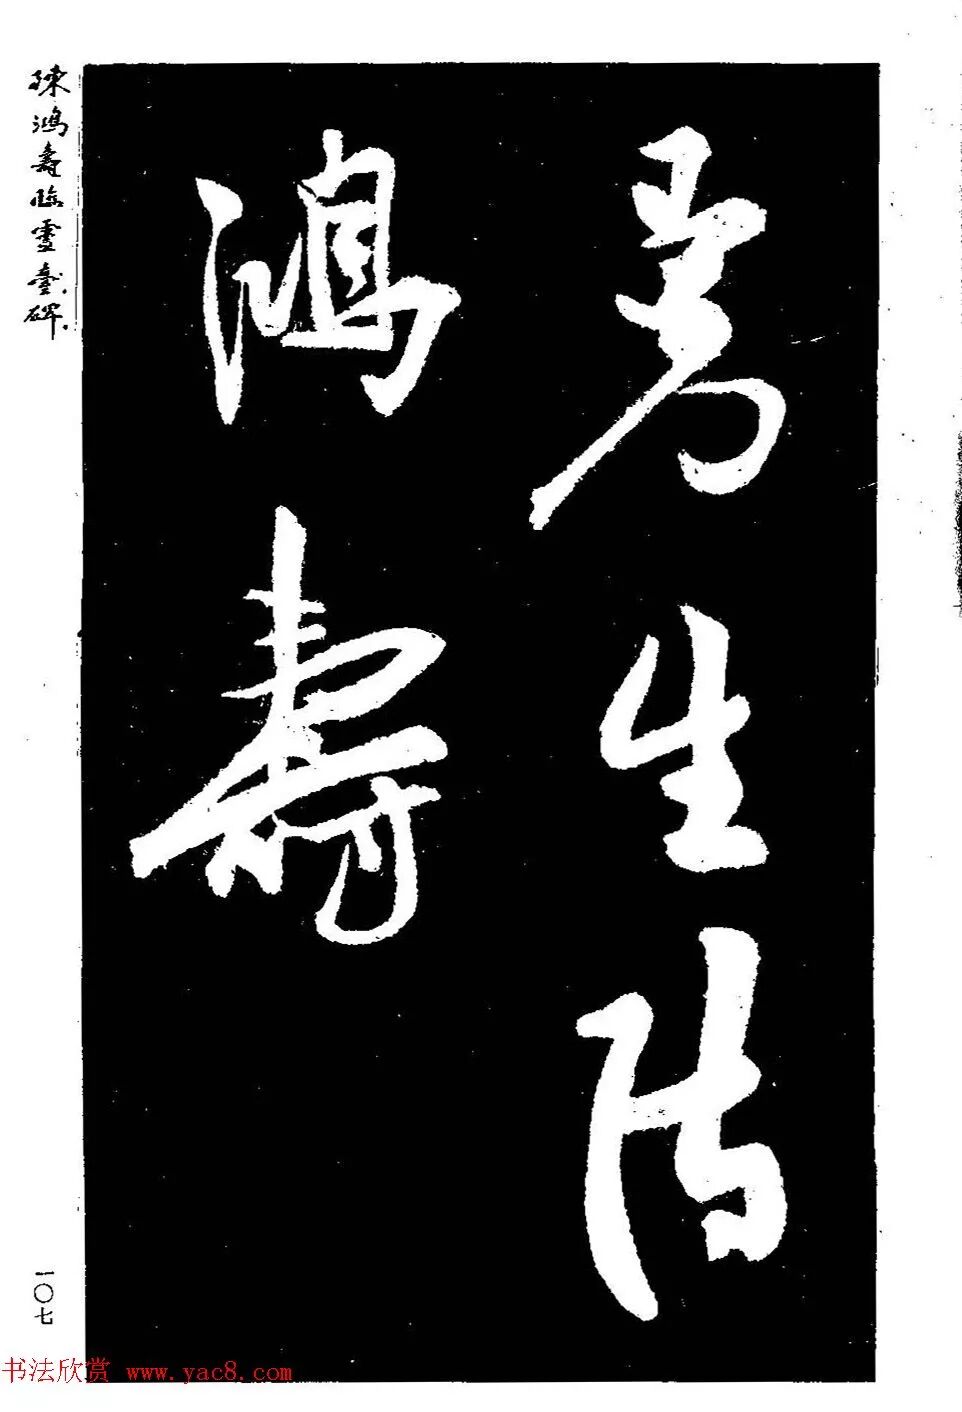 曼生陳
鴻壽
陳鴻壽臨靈臺碑
一〇七
书法欣赏 www.yac8.com